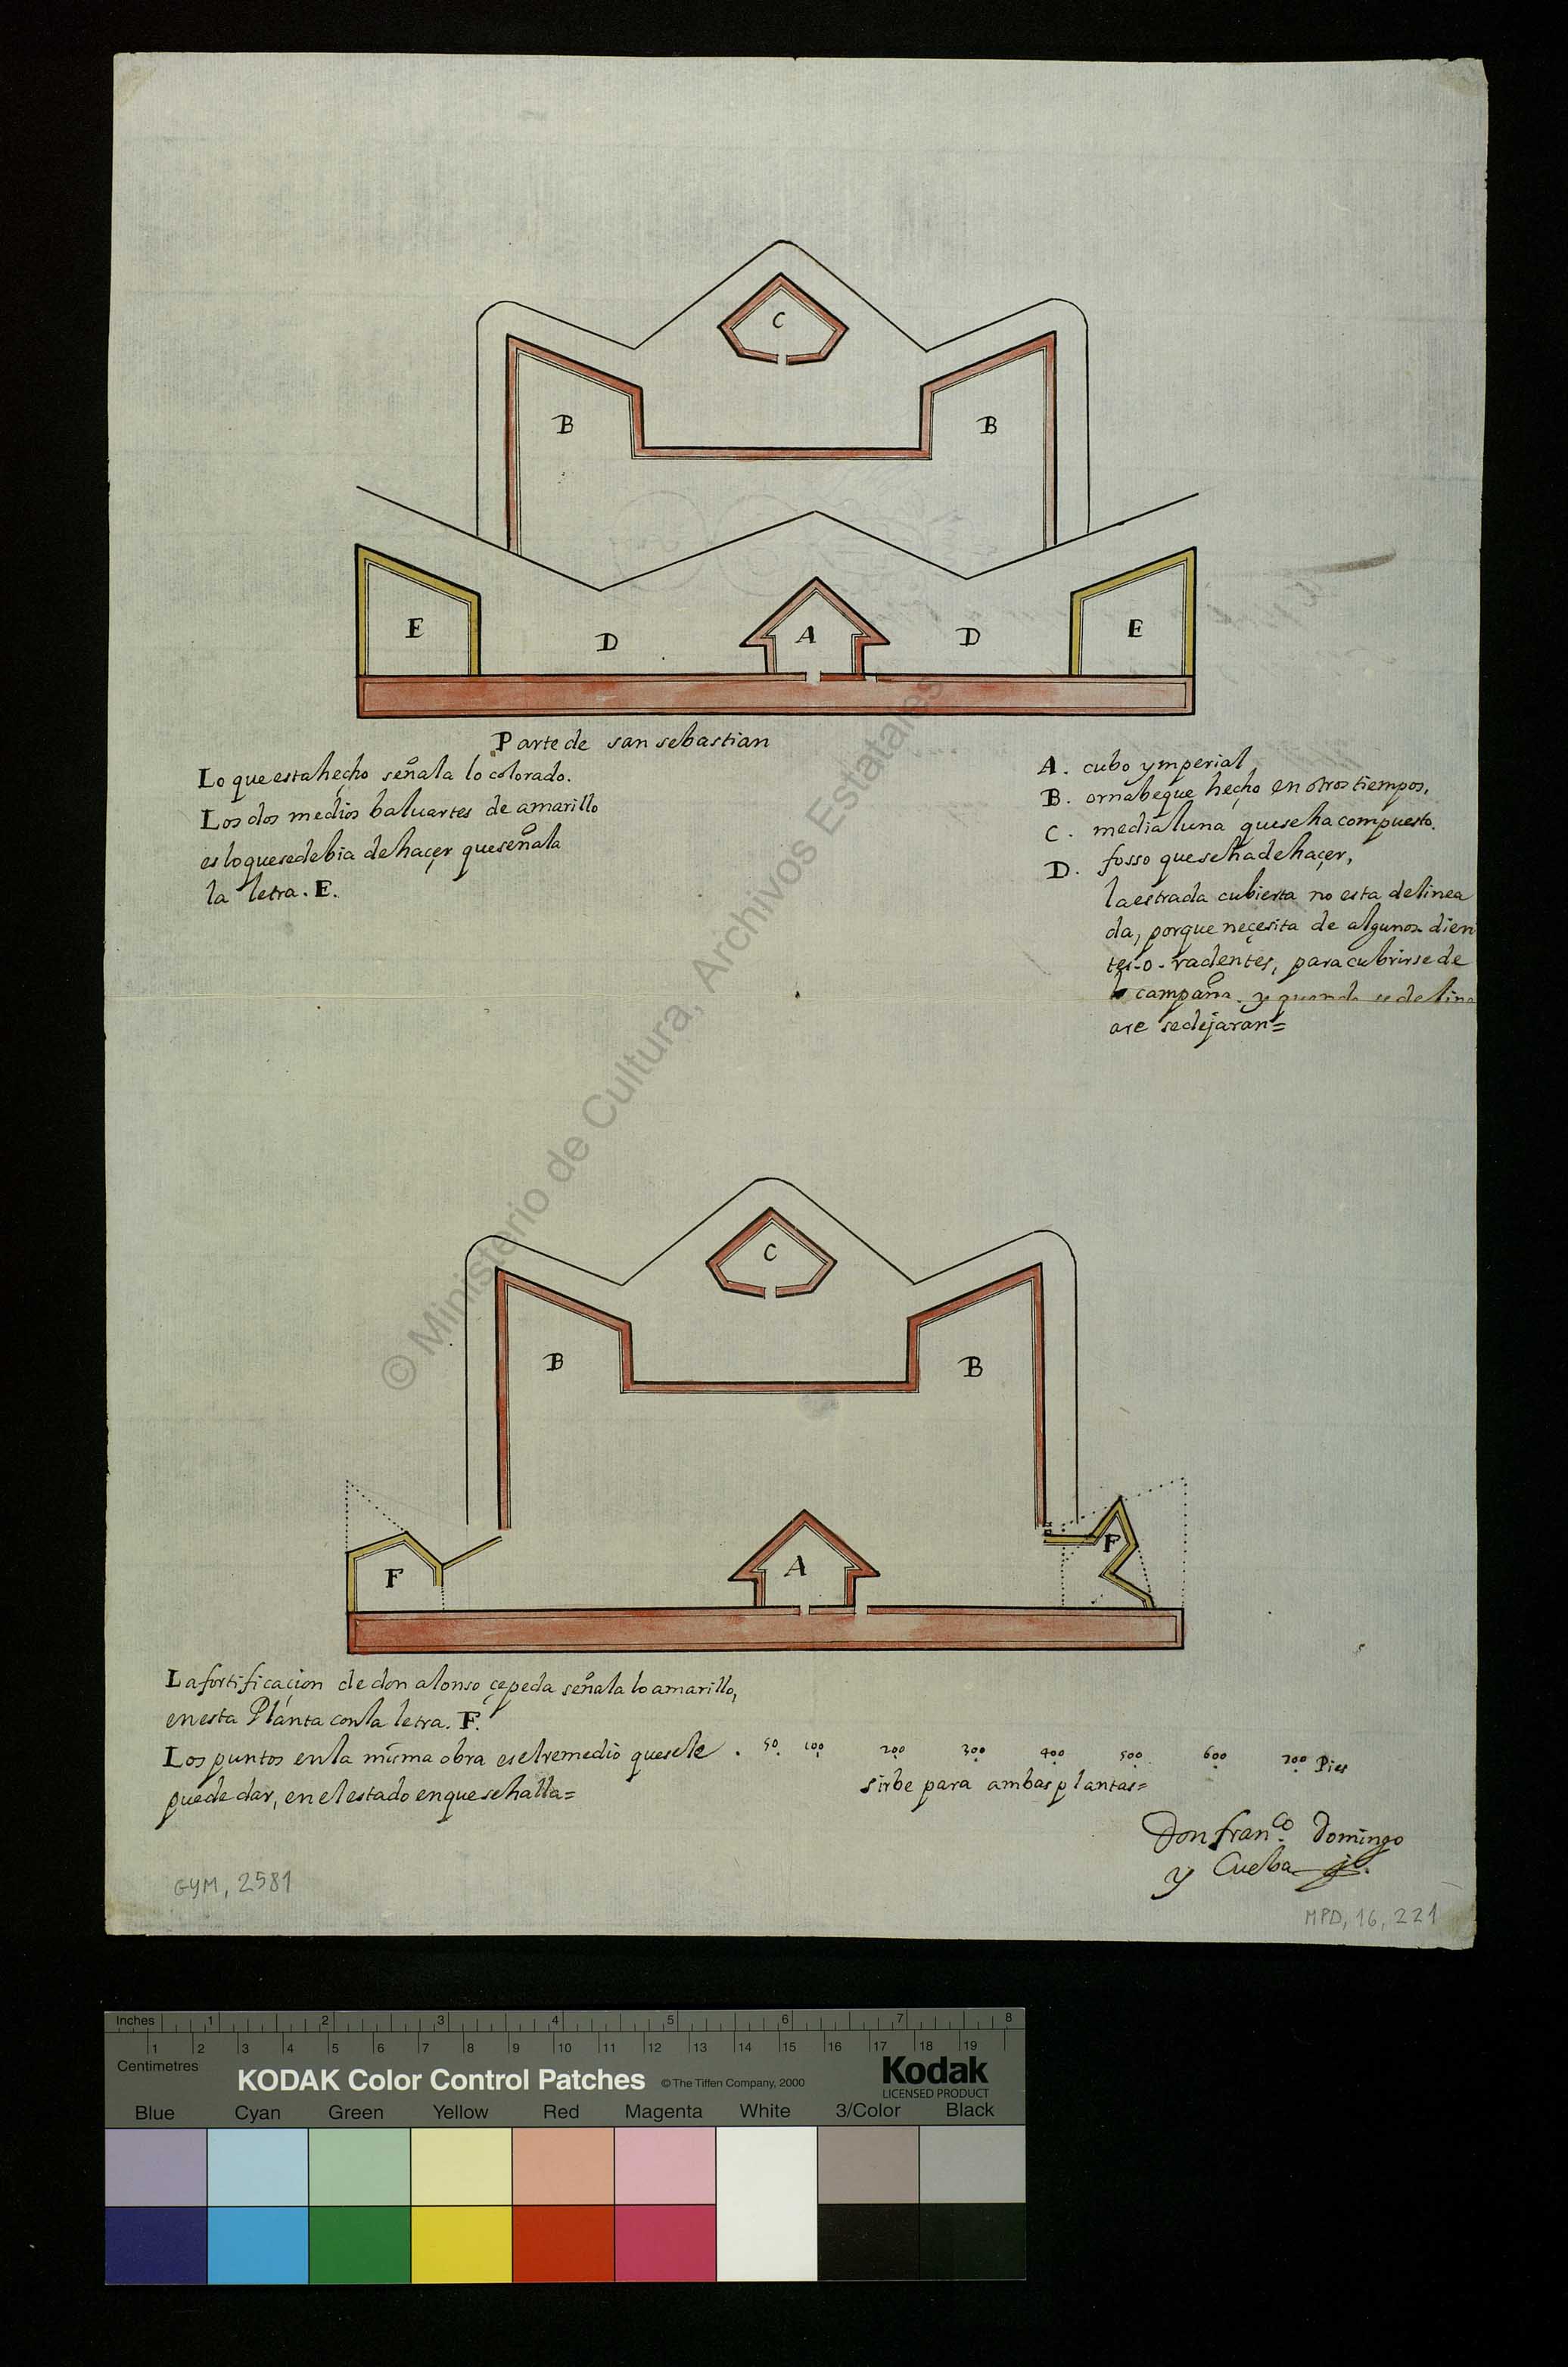 C
B
B
E
D
A
D
E
Parte de san sebastian
Lo que esta hecho señala lo colorado.
Los dos medios baluartes de amarillo
es lo que se debia de haçer que señala
la letra. E.
A. cubo ymperial
B. ornabeque hecho en otros tiempos,
C. media luna que se ha compuesto.
D. fosso que se ha de haçer,
la estrada cubierta no esta delinea
da, porque neçesita de algunos dien
tes - o - radentes, para cubrirse de
campaña. y quando se delina
are se dejaran=
© Ministerio de Cultura, Archivos Estatales
C
B
B
F
A
F
La fortificaçion de don alonso çepeda señala lo amarillo,
en esta Planta con la letra. F.
Los puntos en la misma obra es el remedio que se le
puede dar, en el estado en que se halla=
50 100 200 300 400 500 600 700 Pies
sirbe para ambas plantas=
Don fran.co Domingo
y Cuelba
GYM, 2581
MPD, 16, 221
Inches 1 2 3 4 5 6 7 8
Centimetres 1 2 3 4 5 6 7 8 9 10 11 12 13 14 15 16 17 18 19
KODAK Color Control Patches © The Tiffen Company, 2000
Kodak
LICENSED PRODUCT
Blue Cyan Green Yellow Red Magenta White 3/Color Black